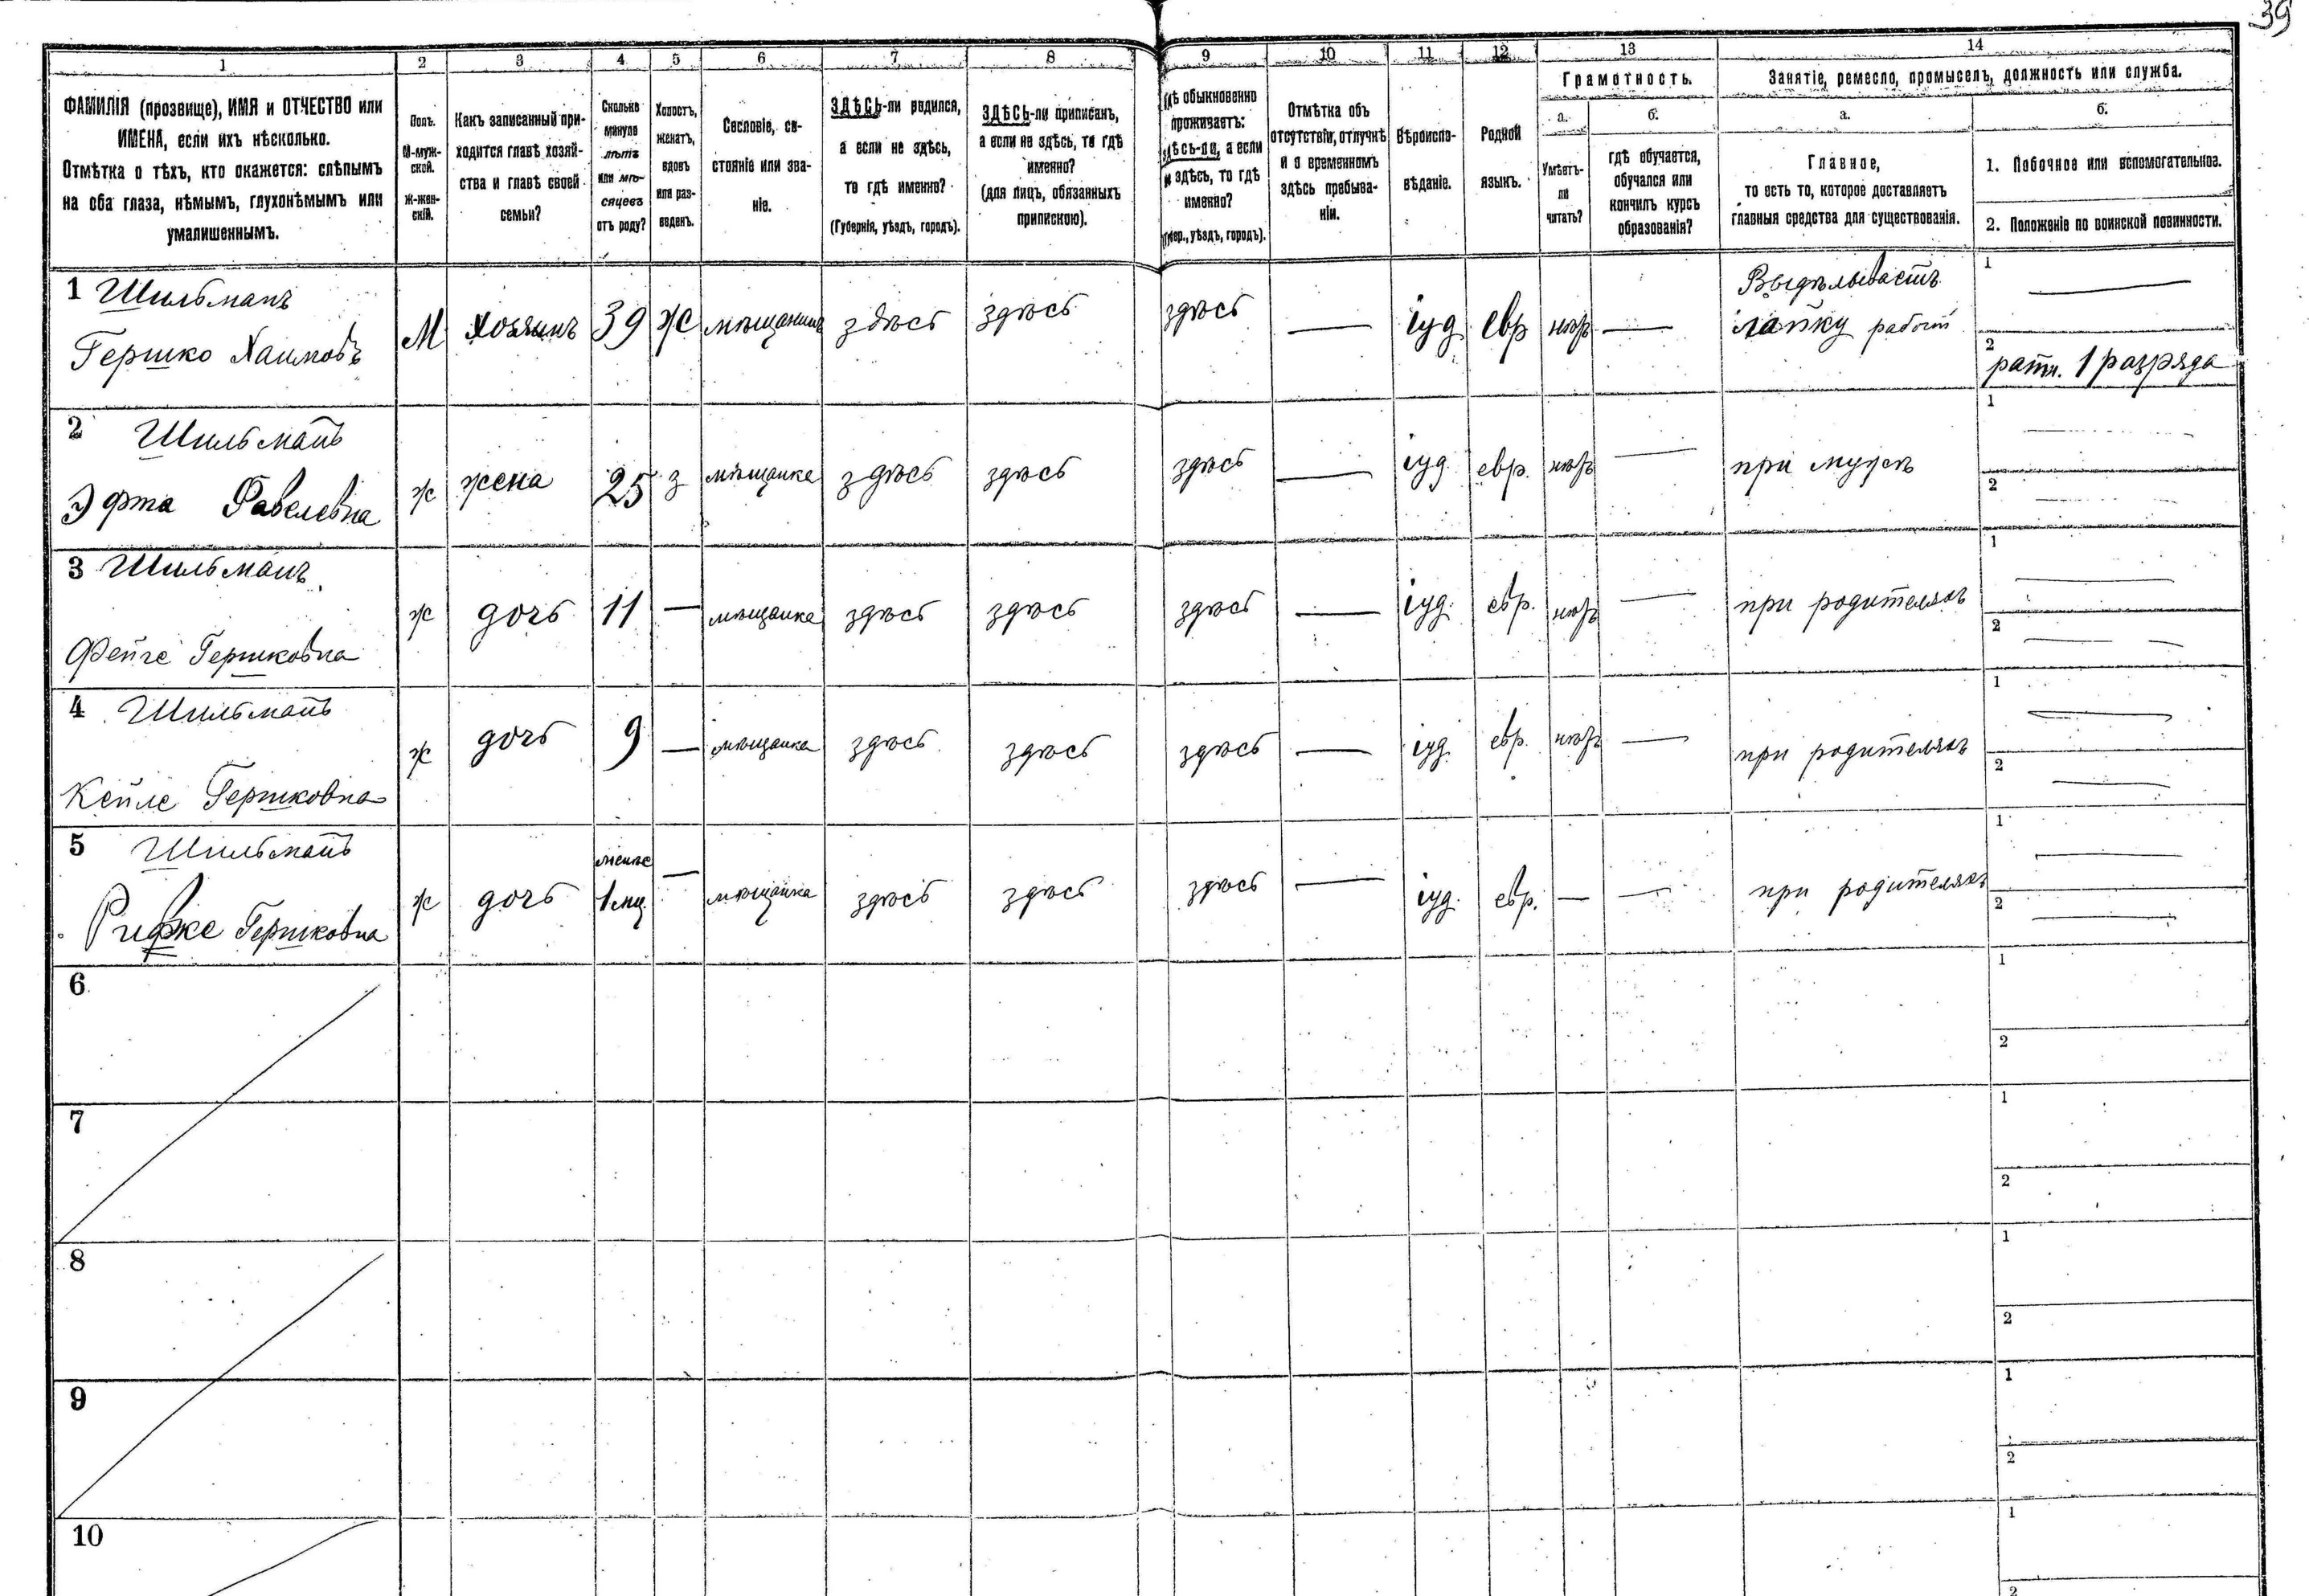 39
1 2 3 4 5 6 7 8 9 10 11 12 13 14
ФАМИЛІЯ (прозвище), ИМЯ и ОТЧЕСТВО или
ИМЕНА, если ихъ нѣсколько.
Отмѣтка о тѣхъ, кто окажется: слѣпымъ
на оба глаза, нѣмымъ, глухонѣмымъ или
умалишеннымъ.
Полъ.
М-муж-
ской.
Ж-жен-
скій.
Какъ записанный при-
ходится главѣ хозяй-
ства и главѣ своей
семьи?
Сколько
минуло
лѣтъ
или мѣ-
сяцевъ
отъ роду?
Холостъ,
женатъ,
вдовъ
или раз-
веденъ.
Сословіе, со-
стояніе или зва-
ніе.
ЗДѢСЬ-ли родился,
а если не здѣсь,
то гдѣ именно?
(Губернія, уѣздъ, городъ).
ЗДѢСЬ-ли приписанъ,
а если не здѣсь, то гдѣ
именно?
(для лицъ, обязанныхъ
припискою).
гдѣ обыкновенно
проживаетъ:
здѣсь-ли, а если
не здѣсь, то гдѣ
именно?
(Губер., уѣздъ, городъ).
Отмѣтка объ
отсутствіи, отлучкѣ
и о временномъ
здѣсь пребыва-
ніи.
Вѣроиспо-
вѣданіе.
Родной
языкъ.
Грамотность.
а.
Умѣетъ-
ли
читать?
б.
гдѣ обучается,
обучался или
кончилъ курсъ
образованія?
Занятіе, ремесло, промыселъ, должность или служба.
а.
Главное,
то есть то, которое доставляетъ
главныя средства для существованія.
б.
1. Побочное или вспомогательное.
2. Положеніе по воинской повинности.
1 Шильманъ
Гершко Хаимовъ
М хозяинъ 39 ж мѣщанинъ здѣсь здѣсь здѣсь — іуд евр нѣтъ —
Выдѣлываетъ
лайку
1 —
2 ратн. 1 разряда
2 Шильманъ
Ж жена 25 з мѣщанка здѣсь здѣсь здѣсь — іуд. евр. нѣтъ — при мужѣ
1 —
2 —
3 Шильманъ
Фейге Гершковна
ж дочь 11 — мѣщанка здѣсь здѣсь здѣсь — іуд. евр. нѣтъ — при родителяхъ
1 —
2 —
4 Шильманъ
Кейле Гершковна
ж дочь 9 — мѣщанка здѣсь здѣсь здѣсь — іуд. евр. нѣтъ — при родителяхъ
1 —
2 —
5 Шильманъ
Рифке Гершковна
ж дочь менѣе
1 мц. — мѣщанка здѣсь здѣсь здѣсь — іуд. евр. — — при родителяхъ
1 —
2 —
6
1
2
7
1
2
8
1
2
9
1
2
10
1
2